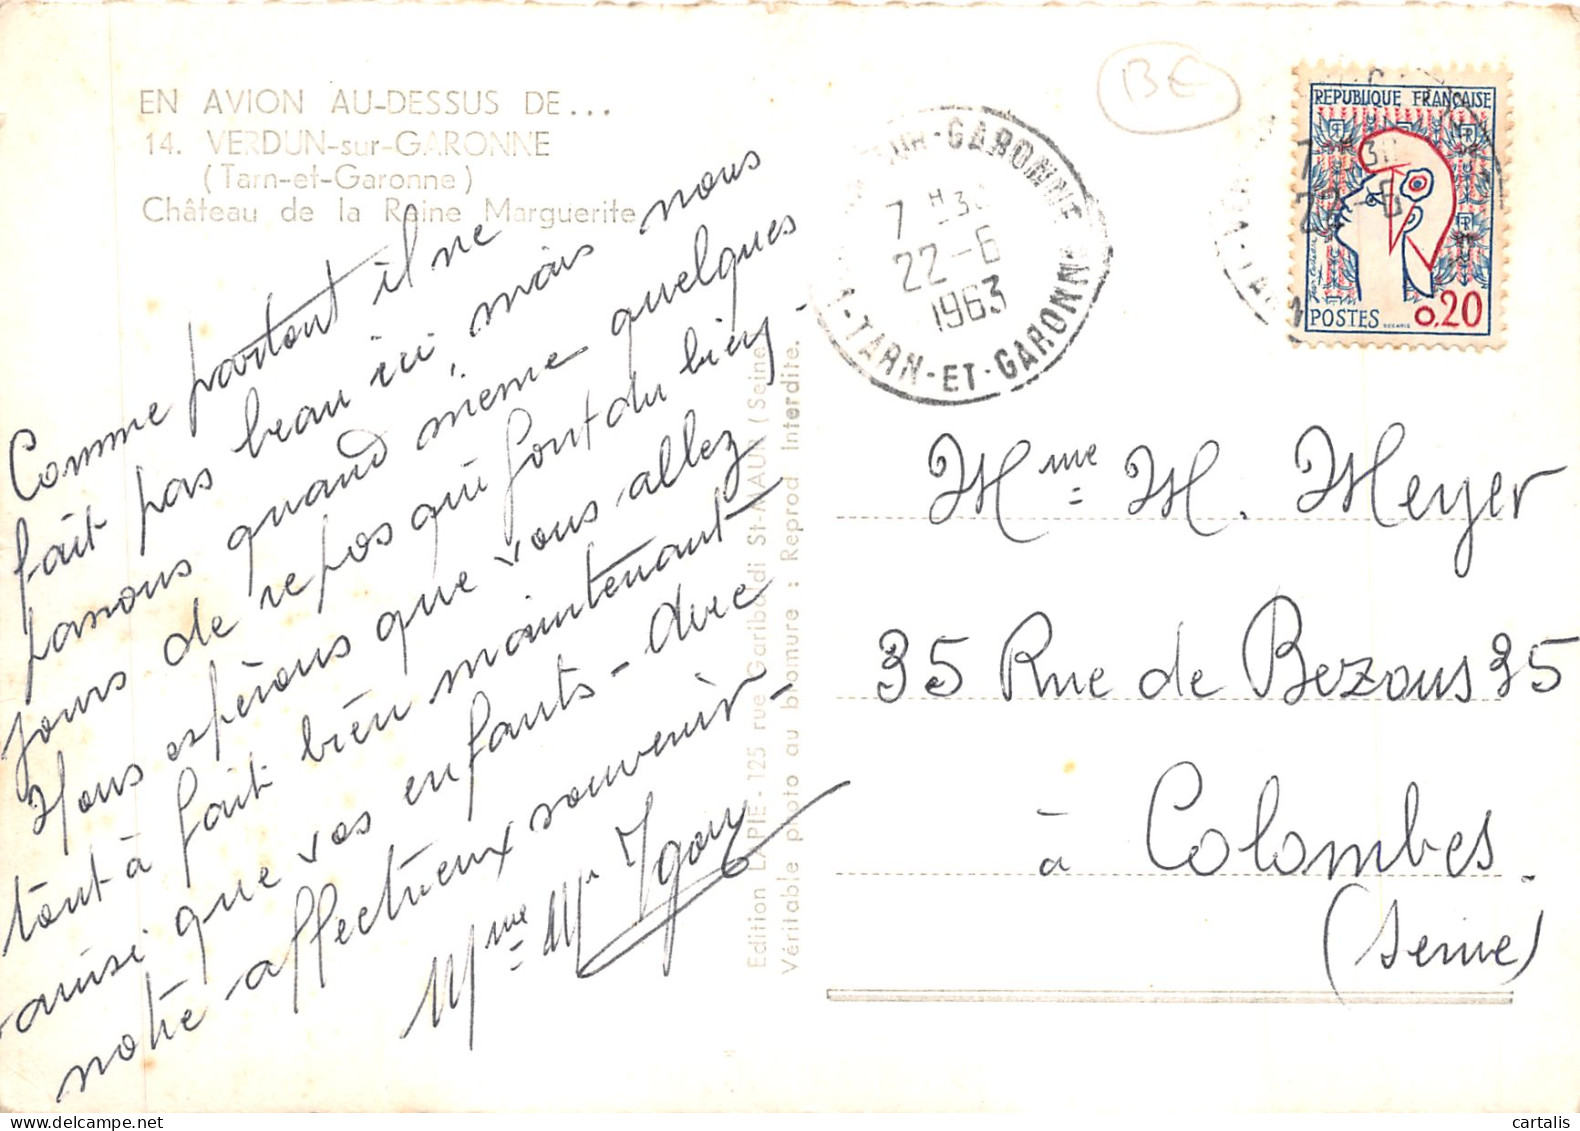 EN AVION AU-DESSUS DE...
14. VERDUN-sur-GARONNE
(Tarn-et-Garonne)
Château de la Reine Marguerite
Comme partout il ne
fait pas beau ici, mais nous
passons quand même quelques
jours de repos qui font du bien -
Nous espérons que vous allez
tout à fait bien maintenant
ainsi que vos enfants - avec
notre affectueux souvenir -
Mme Mr
Edition LAPIE - 125 rue Garibaldi St-MAUR (Seine
Véritable photo au bromure : Reprod Interdite.
BE
SUR-GARONNE
7 H30
22-6
1963
TARN-ET-GARONNE
REPUBLIQUE FRANÇAISE
POSTES 0,20
Mme M. Meyer
35 Rue de Bezons 35
à Colombes.
(Seine)
cartalis